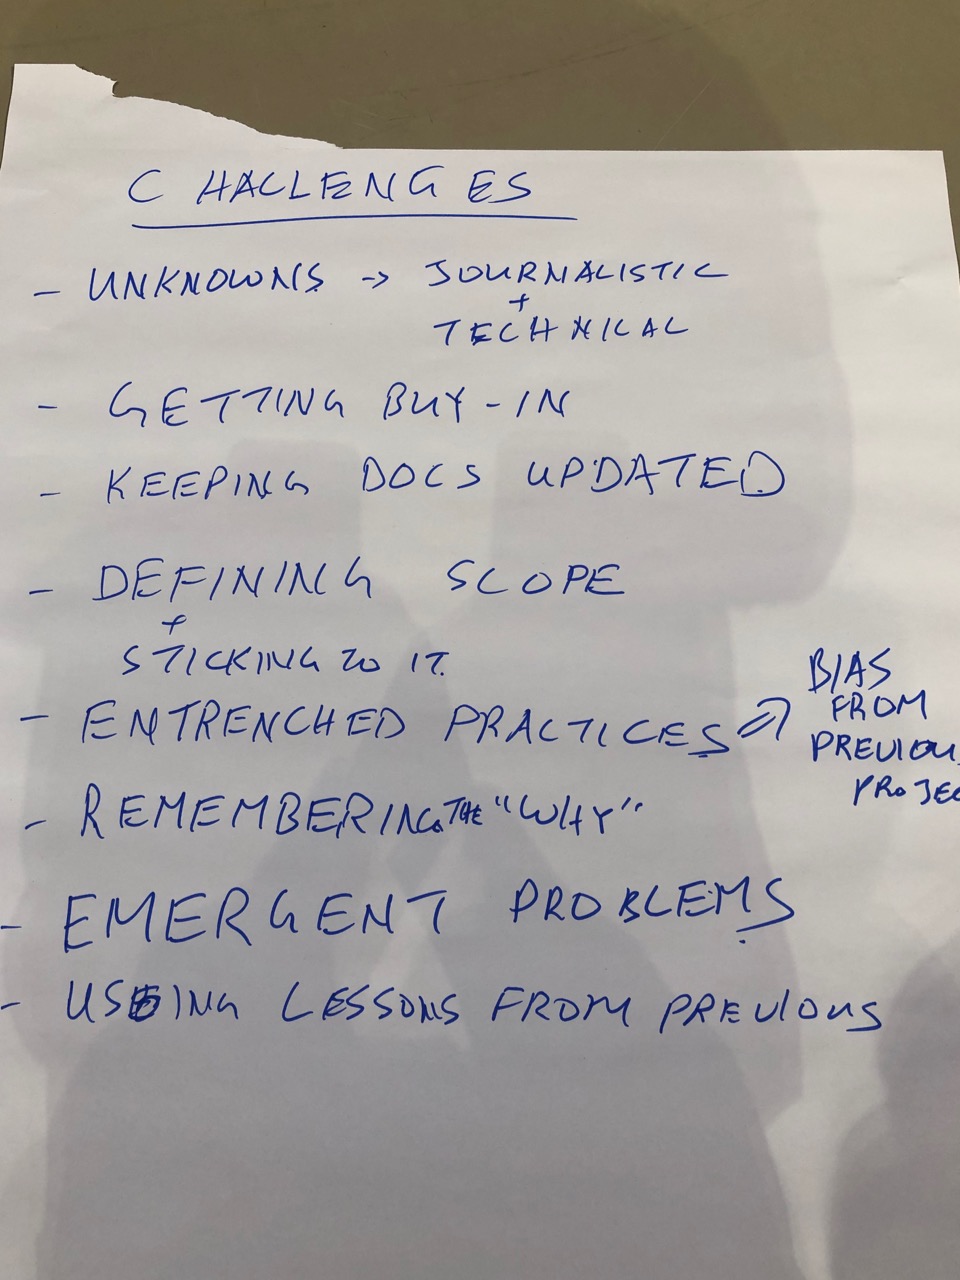 CHALLENGES
- UNKNOWNS → JOURNALISTIC
+
TECHNICAL
- GETTING BUY-IN
- KEEPING DOCS UPDATED
- DEFINING SCOPE
+
STICKING TO IT.
- ENTRENCHED PRACTICES →
BIAS
FROM
PREVIOU
PROJEC
- REMEMBERING THE "WHY"
- EMERGENT PROBLEMS
- USING LESSONS FROM PREVIOUS